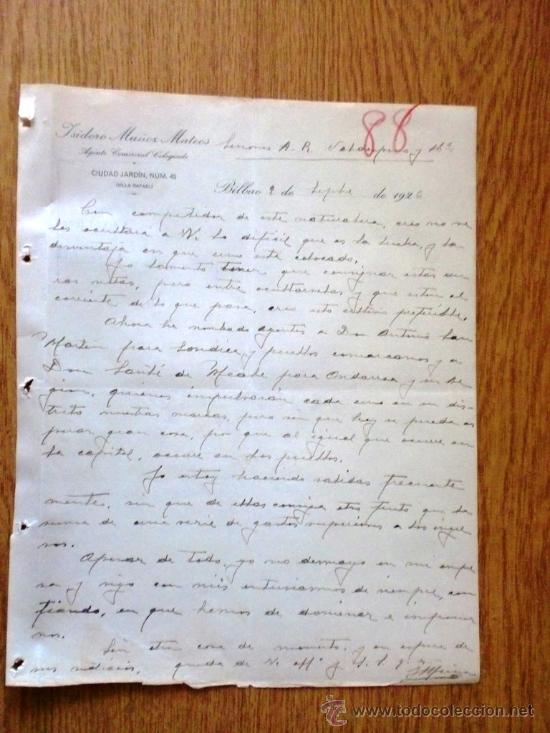 88
Isidoro Muñoz Mateos
Agente Comercial Colegiado
Señores A. R. y
CIUDAD JARDÍN, NÚM. 45
(VILLA RAFAEL)
Bilbao 2 de Septbre de 1926
Con competidor de esta naturaleza, creo no se
les ocultará a Vs. lo difícil que es la lucha, y la
desventaja en que uno está colocado.
Yo lamento tener que consignar estas
notas, pero entre ocultarselas y que esten al
corriente de lo que pasa, creo esto último preferible.
Ahora he nombrado agentes a Don Antonio San
Martín para y pueblos comarcanos y a
Don de para Ondarroa y su re
gion, quienes cada uno en su dis-
trito nuestras marcas, pero sin que hoy se pueda es
perar gran cosa, por que al igual que ocurre en
la capital, ocurre en los pueblos.
Yo estoy haciendo salidas frecuente
mente, sin que de ellas consiga otro fruto que la
suma de una serie de gastos superiores a los ingre
sos.
Apesar de todo, yo no desmayo en mi empre
sa y sigo con mis entusiasmos de siempre, con
fiando, en que hemos de dominar e imponer
nos.
Sin otra cosa de momento, y en espera de
sus noticias, queda de V. aff. y S. S.
todocoleccion
www.todocoleccion.net